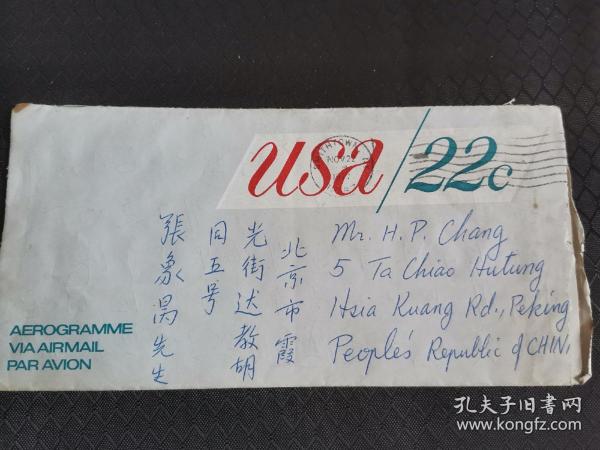 usa/22c
NOV 22
Mr. H. P. Chang
5 Ta Chiao Hutung
Hsia Kuang Rd., Peking
People's Republic of CHIN
北京市霞
光街达教胡
同五号
張象昺先生
AEROGRAMME
VIA AIRMAIL
PAR AVION
孔夫子旧书网
www.kongfz.com